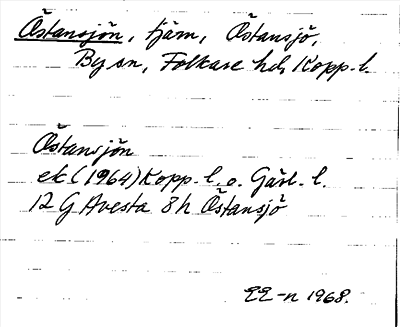 Östansjön, tjärn, Östansjö,
By sn, Folkare hd, Kopp. l.
Östansjön
ek (1964) Kopp. l. o. Gävl. l.
12 G Avesta 8h Östansjö
EE-n 1968.